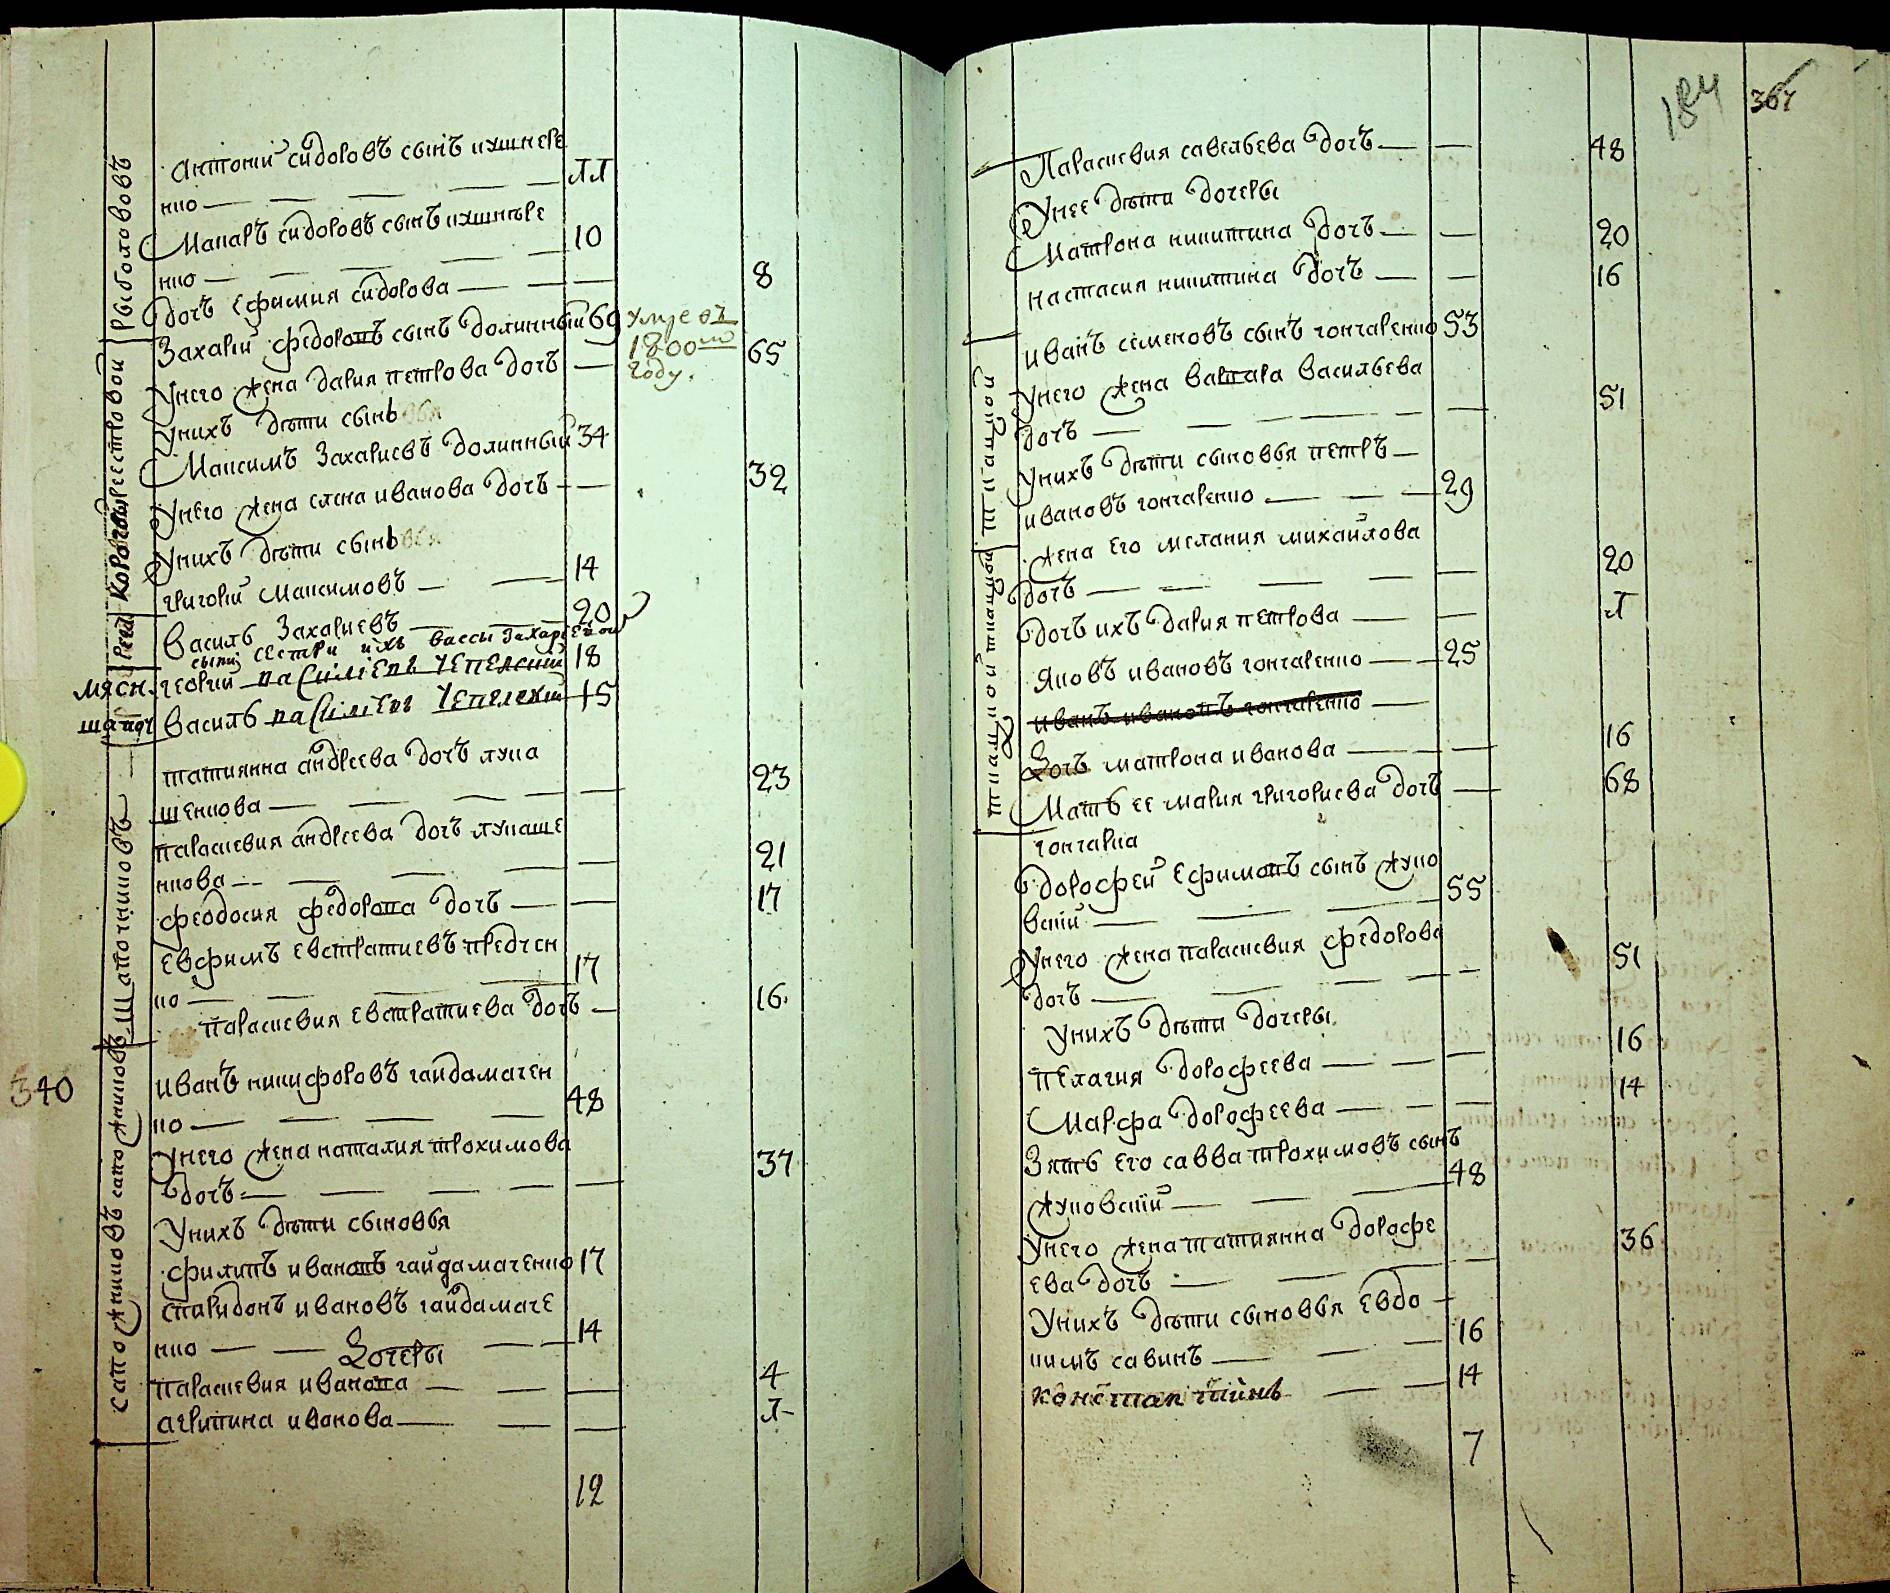 Рыболововъ
Антоній сидоровъ сынъ кушнере
нко 11
Макаръ сидоровъ сынъ кушнере
нко 10
дочь Ефимия сидорова 8
Захарій федоровъ сынъ долинный 69 умре въ
1800м году.
Унего жена дария петрова дочь 65
Унихъ дети сынъ
Максимъ Захариевъ долинный 34
Унего жена елена иванова дочь 32
Унихъ дети сынъ
григорій Максимовъ 14
Василь Захариевъ 20
сыны сестри ихъ вассы Захариевой
мясн. георгій 18
шапоч Василь 15
татиянна андреева дочь лука
шенкова 23
параскевия андреева дочь лукаше
нкова 21
феодосия федорова дочь 17
Евфимъ евстратиевъ предчен
ко 17
параскевия евстратиева дочь 16.
Шапочниковъ
340
иванъ никифоровъ гайдамачен
ко 48
Унего жена наталия трохимова
дочь 37
Унихъ дети сыновья
филипъ ивановъ гайдамаченко 17
спиридонъ ивановъ гайдамаче
нко 14
дочеры
параскевия иванова 4
агрипина иванова 1
сапожниковъ сапожниковъ
12
184 367
Параскевия савельева дочь 48
Унее дети дочеры
Матрона никитина дочь 20
настасия никитина дочь 16
иванъ семеновъ сынъ гончаренко 53
Унего жена варвара васильева
дочь 51
Унихъ дети сыновья петръ
ивановъ гончаренко 29
жена его мелания михайлова
дочь 20
дочь ихъ дария петрова 1
яковъ ивановъ гончаренко 25
иванъ ивановъ гончаренко
дочь матрона иванова 16
Мать ее мария григориева дочь 68
гончарка
дорофей Ефимовъ сынъ жуко
вскій 55
Унего жена параскевия федорова
дочь 51
Унихъ дети дочеры
пелагия дорофеева 16
Марфа дорофеева 14
Зять его савва трохимовъ сынъ
жуковскій 48
Унего жена татиянна дорофе
ева дочь 36
Унихъ дети сыновья евдо
кимъ савинъ 16
константинъ 14
7